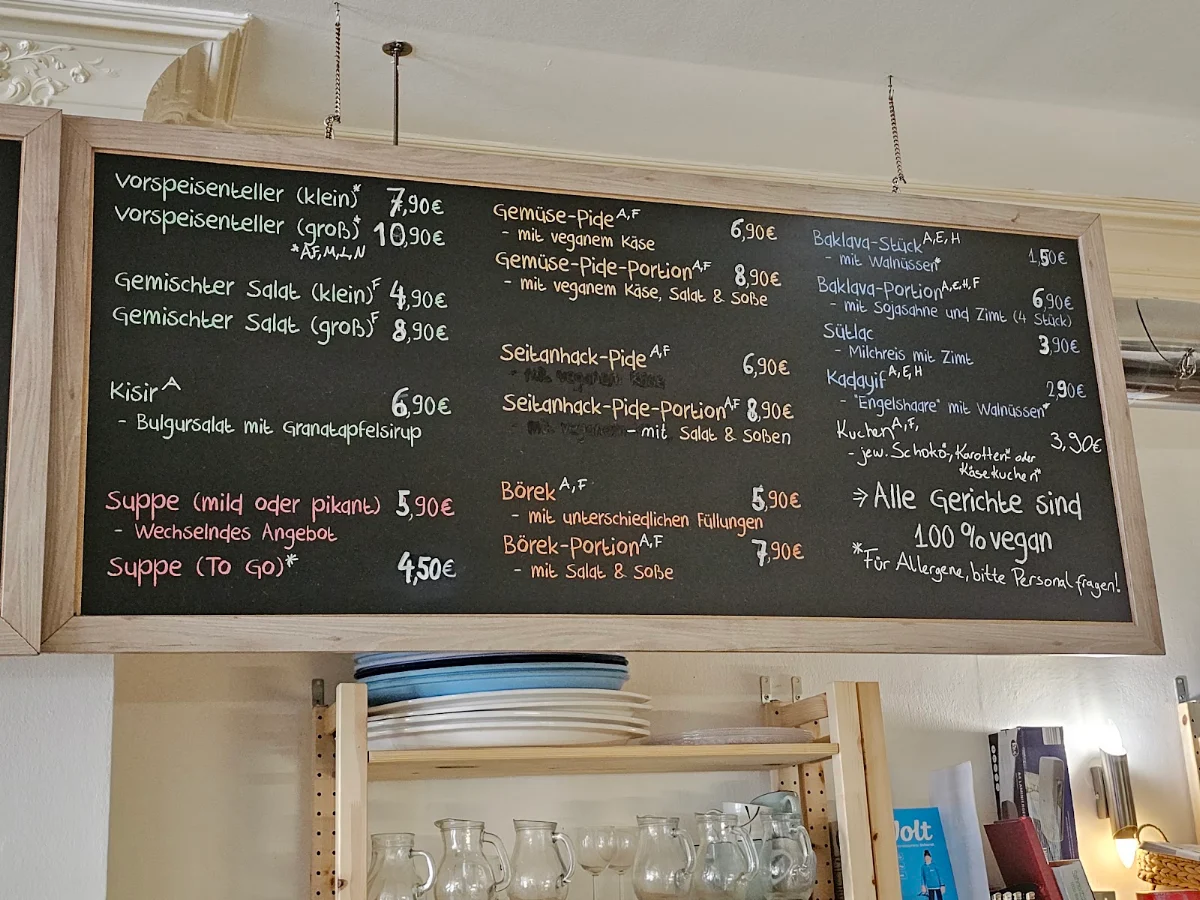 Vorspeisenteller (klein)* 7,90€
Vorspeisenteller (groß)* 10,90€
*A,F,M,L,N
Gemischter Salat (klein)F 4,90€
Gemischter Salat (groß)F 8,90€
Kisir A 6,90€
- Bulgursalat mit Granatapfelsirup
Suppe (mild oder pikant) 5,90€
- Wechselndes Angebot
Suppe (To Go)* 4,50€
Gemüse-Pide A,F 6,90€
- mit veganem Käse
Gemüse-Pide-Portion A,F 8,90€
- mit veganem Käse, Salat & Soße
Seitanhack-Pide A,F 6,90€
Seitanhack-Pide-Portion A,F 8,90€
- mit Salat & Soßen
Börek A,F 5,90€
- mit unterschiedlichen Füllungen
Börek-Portion A,F 7,90€
- mit Salat & Soße
Baklava-Stück A,E,H 1,50€
- mit Walnüssen*
Baklava-Portion A,E,H,F 6,90€
- mit Sojasahne und Zimt (4 Stück)
Sütlac 3,90€
- Milchreis mit Zimt
Kadayif A,E,H 2,90€
- "Engelshaare" mit Walnüssen*
Kuchen A,F, 3,90€
- jew. Schoko*-, Karotten* oder
Käsekuchen*
⇒ Alle Gerichte sind
100 % vegan
*Für Allergene, bitte Personal fragen!
Volt